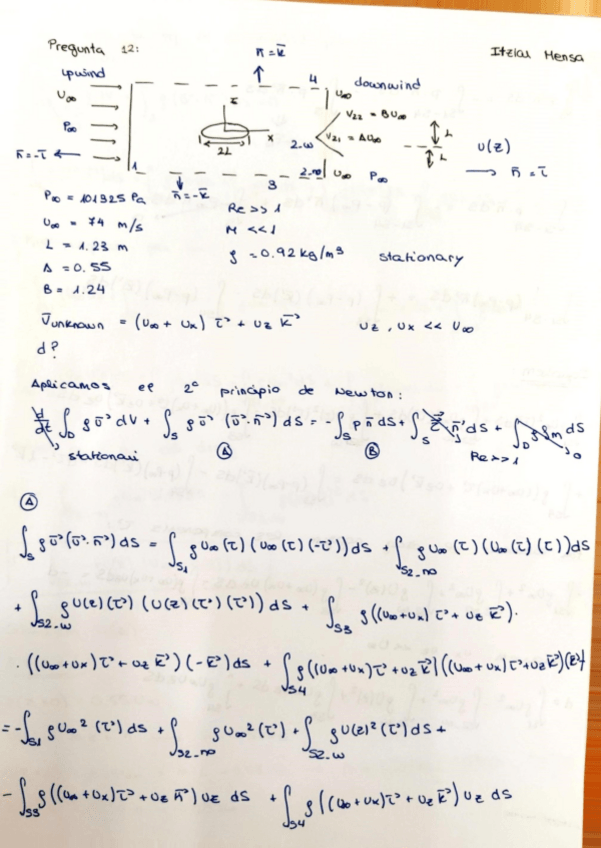 Pregunta 12:
Itziar Mensa
n̄ = k̄
upwind
4
downwind
U∞
U∞
V22 = BU∞
z
P∞
x
V21 = ΔU∞
L
u(z)
2L
2.w
L
n̄ = -ī
1
2.no
U∞
P∞
n̄ = ī
n̄ = -k̄
3
P∞ = 101325 Pa
Re >> 1
U∞ = 74 m/s
M << 1
L = 1.23 m
ρ = 0.92 kg/m³
stationary
Δ = 0.55
B = 1.24
v̄unknown = (U∞ + Ux) ī + Uz k̄
Uz, Ux << U∞
d?
Aplicamos el 2º principio de Newton:
d/dt ∫D ρ v̄ dV + ∫S ρ v̄ (v̄·n̄) dS = -∫S p n̄ dS + ∫S τ n̄ dS + ∫D ρ fm dS
stationari
A
B
Re >> 1
0
A
∫S ρ v̄ (v̄·n̄) dS = ∫S1 ρ U∞ (ī) (U∞ (ī) (-ī)) dS + ∫S2_no ρ U∞ (ī) (U∞ (ī) (ī)) dS
+ ∫S2_w ρ U(z) (ī) (U(z) (ī) (ī)) dS + ∫S3 ρ ((U∞ + Ux) ī + Uz k̄) ·
· ((U∞ + Ux) ī + Uz k̄) (-k̄) dS + ∫S4 ρ ((U∞ + Ux) ī + Uz k̄) ((U∞ + Ux) ī + Uz k̄) (k̄)
= -∫S1 ρ U∞² (ī) dS + ∫S2_no ρ U∞² (ī) + ∫S2_w ρ U(z)² (ī) dS +
- ∫S3 ρ ((U∞ + Ux) ī + Uz k̄) Uz dS + ∫S4 ρ ((U∞ + Ux) ī + Uz k̄) Uz dS